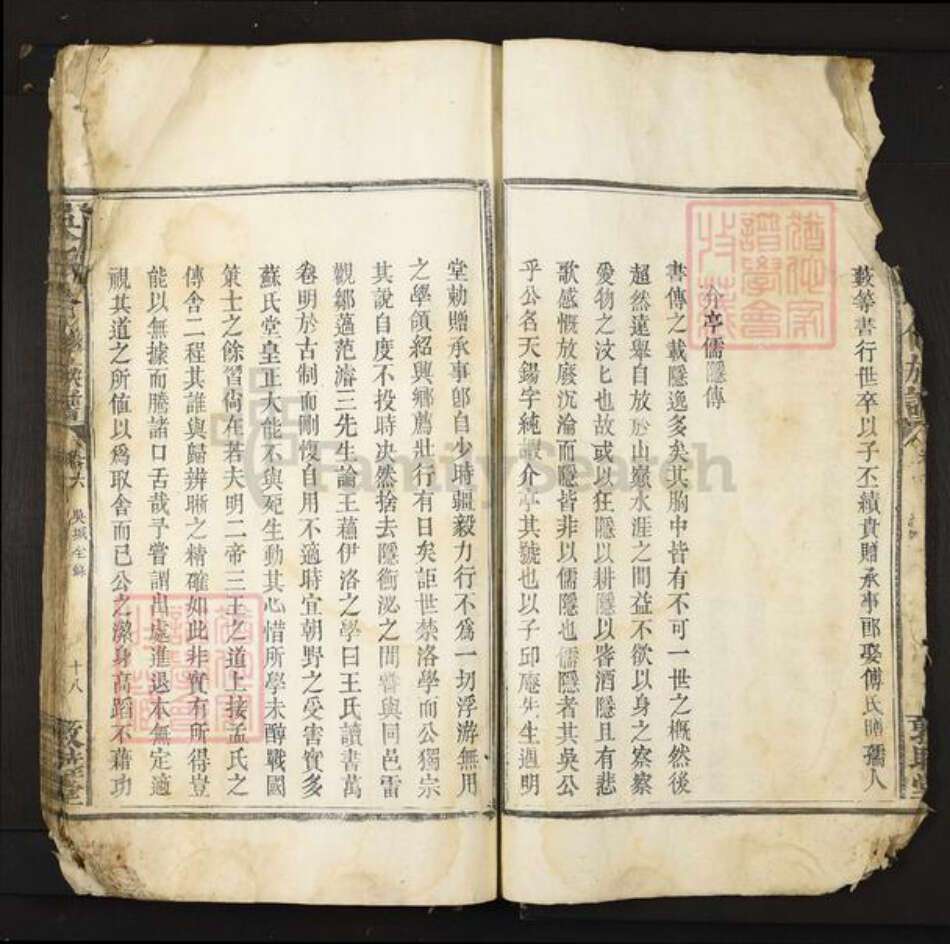 數等書行世卒以子丕績貴贈承事郎娶傅氏贈孺人
介亭儒隱傳
書傳之載隱逸多矣其胸中皆有不可一世之概然後
超然遠舉自放於山巔水涯之間益不欲以身之察察
愛物之汶匕也故或以狂隱以耕隱以嗜酒隱且有悲
歌感慨放廢沉淪而隱皆非以儒隱也儒隱者其吳公
乎公名天錫字純嘏介亭其號也以子邱庵先生遇明
堂勑贈承事郎自少時疆毅力行不為一切浮游無用
之學領紹興鄉薦壯行有日矣詎世禁洛學而公獨宗
其說自度不投時决然捨去隱衡泌之間嘗與同邑雷
觀鄒薖范濬三先生論王蘓伊洛之學曰王氏讀書萬
卷明於古制而剛愎自用不適時宜朝野之受害實多
蘇氏堂皇正大能不與死生動其心惜所學未醇戰國
策士之餘習尚在若夫明二帝三王之道上接孟氏之
傳舍二程其誰與歸辨晰之精確如此非實有所得豈
能以無據而騰諸口舌哉予嘗謂出處進退本無定適
視其道之所値以爲取舍而已公之潔身高蹈不藉功
卷六
吳城全錄
十八
敦睦堂
FamilySearch